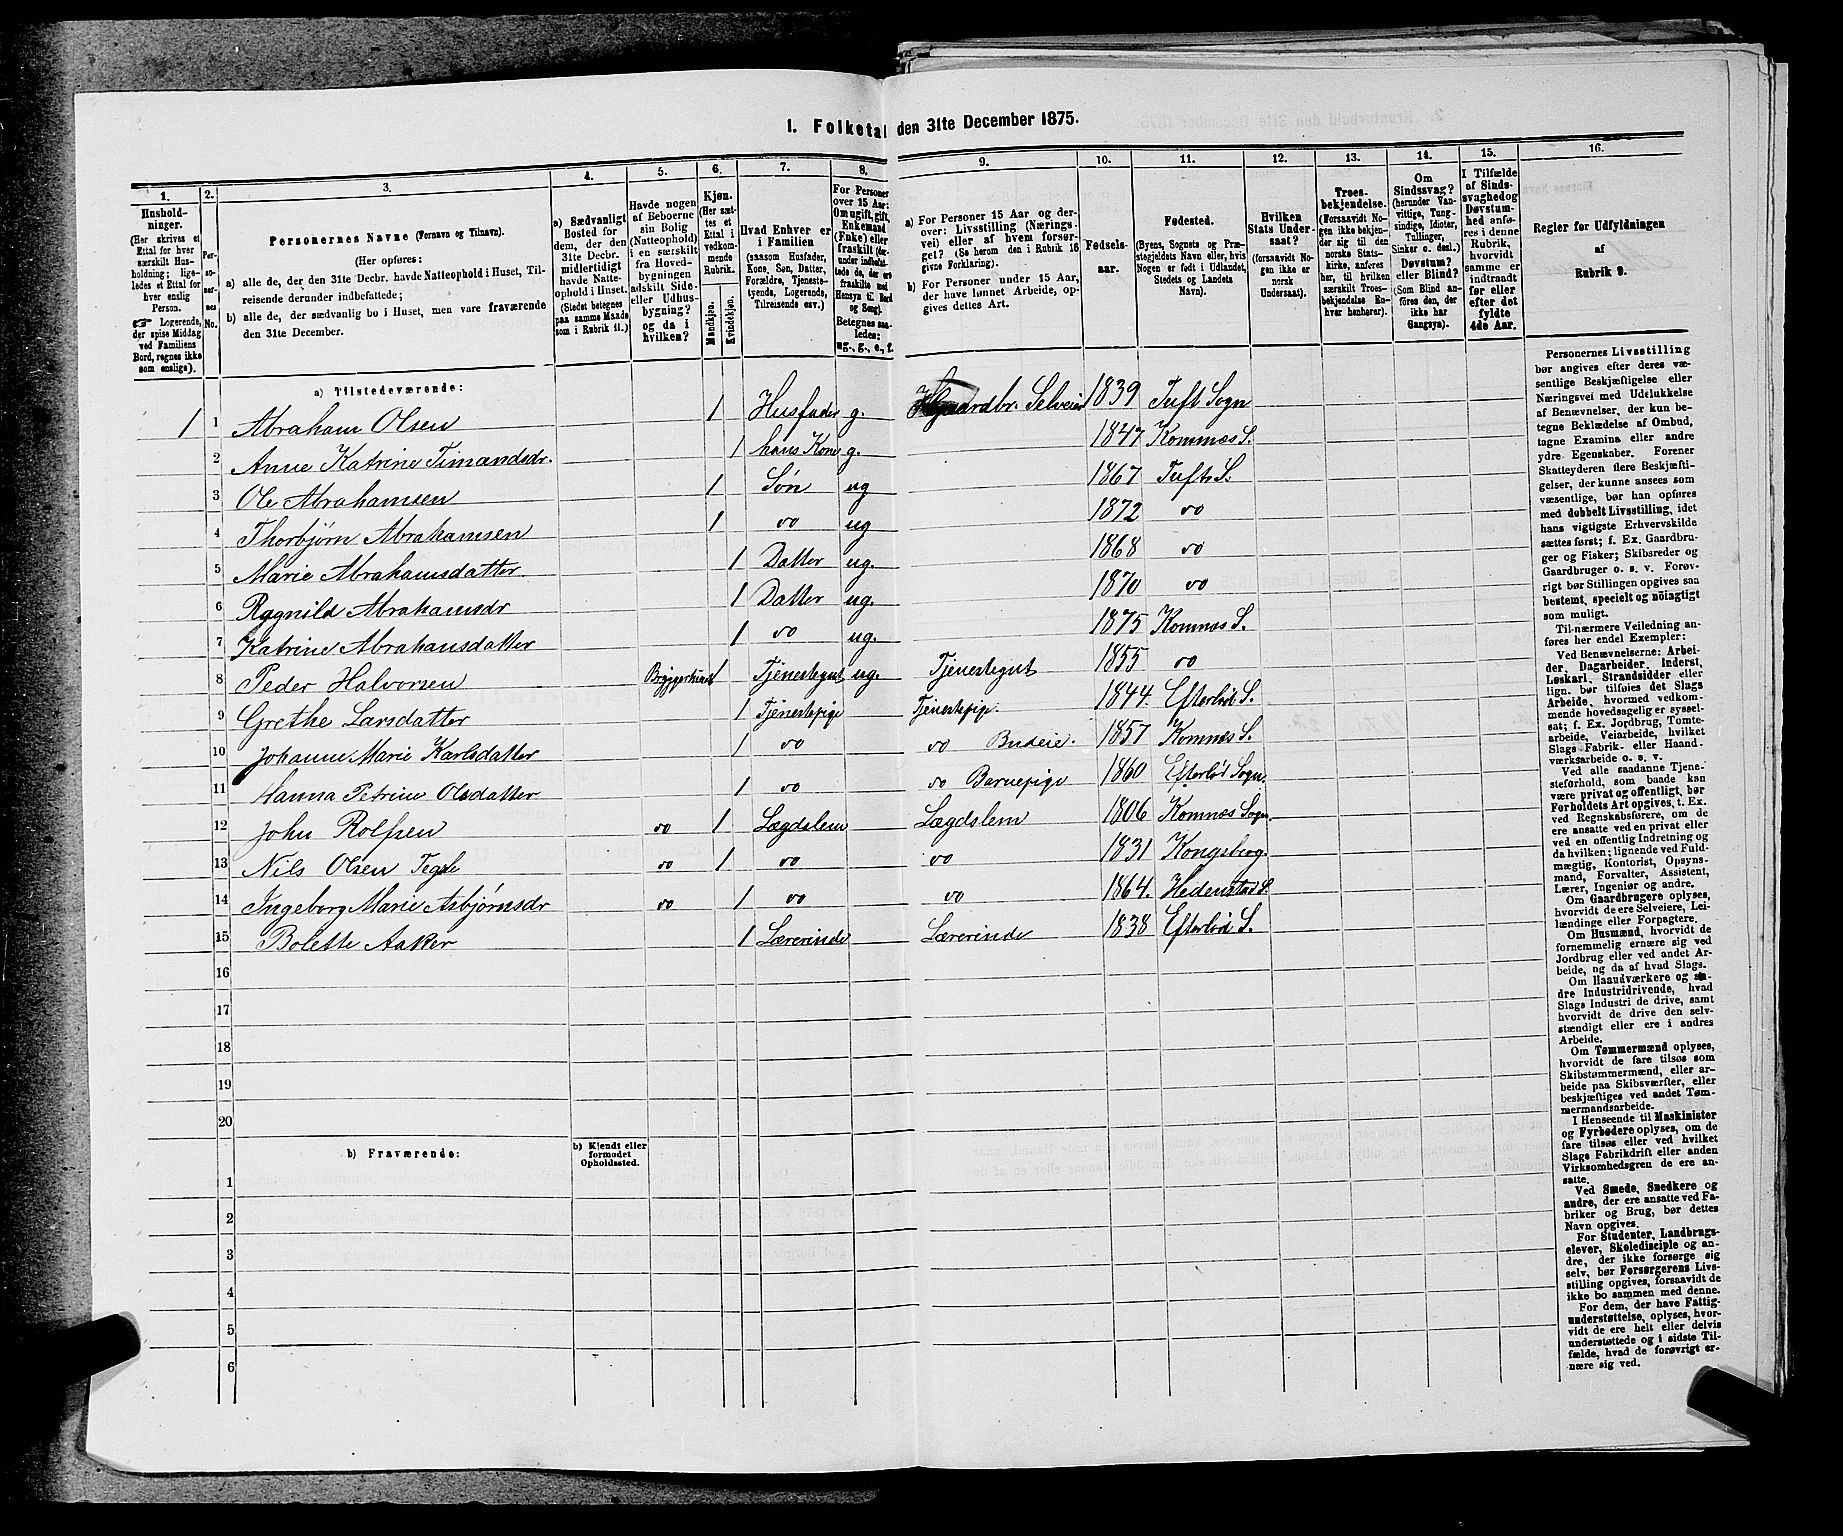 1. Folketal den 31te December 1875.
1. 2. 3. 4. 5. 6. 7. 8. 9. 10. 11. 12. 13. 14. 15. 16.
Hushold-
ninger.
(Her skrives et
Ettal for hver
særskilt Hus-
holdning; lige-
ledes et Ettal for
hver enslig
Person.
☞ Logerende,
der spise Middag
ved Familiens
Bord, regnes ikke
som enslige).
Per-
so-
ner-
nes
No.
Personernes Navne (Fornavn og Tilnavn).
(Her opføres:
a) alle de, der den 31te Decbr. havde Natteophold i Huset, Til-
reisende derunder indbefattede;
b) alle de, der sædvanlig bo i Huset, men vare fraværende
den 31te December.
a) Sædvanligt
Bosted for
dem, der den
31te Decbr.
midlertidigt
havde Natte-
ophold i Huset.
(Stedet betegnes
paa samme Maade
som i Rubrik 11.)
Havde nogen
af Beboerne
sin Bolig
(Natteophold)
i en særskilt
fra Hoved-
bygningen
adskilt Side-
eller Udhus-
bygning?
og da i
hvilken?
Kjøn.
(Her sæt-
tes et
Ettal i
vedkom-
mende
Rubrik.
Mandkjøn.
Kvindekjøn.
Hvad Enhver er
i Familien
(saasom Husfader,
Kone, Søn, Datter,
Forældre, Tjeneste-
tyende, Logerende,
Tilreisende osv.)
For Personer
over 15 Aar:
Om ugift, gift,
Enkemand
(Enke) eller
fraskilt (der-
under indbefat-
tede de, der ere
fraskilte med
Hensyn til Bord
og Seng).
Betegnes saa-
ledes:
ug., g., e., f.
a) For Personer 15 Aar og der-
over: Livsstilling (Nærings-
vei) eller af hvem forsør-
get? (Se herom den i Rubrik 16
givne Forklaring).
b) For Personer under 15 Aar,
der have lønnet Arbeide, op-
gives dettes Art.
Fødsels-
aar.
Fødested.
(Byens, Sognets og Præ-
stegjeldets Navn eller, hvis
Nogen er født i Udlandet,
Stedets og Landets
Navn).
Hvilken
Stats Under-
saat?
(forsaavidt No-
gen ikke er
norsk
Undersaat).
Troes-
bekjendelse.
(Forsaavidt No-
gen ikke bekjen-
der sig til den
norske Stats-
kirke, anføres
her, til hvilken
særskilt Troes-
bekjendelse En-
hver henhører).
Om
Sindssvag?
(herunder Van-
vittige, Tung-
sindige, Idioter,
Tullinger,
Sinker o. desl.)
Døvstum?
eller Blind?
(Som Blind an-
føres den, der
ikke har
Gangsyn).
I Tilfælde
af Sinds-
svaghed og
Døvstum-
hed anfø-
res i denne
Rubrik,
hvorvidt
samme er
indtraadt
før eller
efter det
fyldte
4de Aar.
Regler for Udfyldningen
af
Rubrik 9.
a) Tilstedeværende:
1 1 Abraham Olsen 1 Husfader g. Gaardbr. Selveier 1839 Tuft Sogn
2 Anne Katrine Timandsdr. 1 hans Kone g. 1847 Komnæs S.
3 Ole Abrahamsen 1 Søn ug 1867 Tufts S.
4 Thorbjørn Abrahamsen 1 do ug 1872 do
5 Marie Abrahamsdatter 1 Datter ug. 1868 do
6 Ragnild Abrahamsdr 1 Datter ug. 1870 do
7 Katrine Abrahamsdatter 1 do ug. 1875 Komnæs S.
8 Peder Halvorsen Bryggerhuset 1 Tjenestegut ug. Tjenestegut 1855 do
9 Grethe Larsdatter 1 Tjenestepige Tjenestepige. 1844. Efterlød S.
10 Johanne Marie Karlsdatter 1 do do Budeie. 1857 Komnæs S.
11 Hanna Petrine Olsdatter 1 do do Barnepige 1860 Efterlød Sogn.
12 John Rolfsen do 1 Lægdslem Lægdslem 1806 Komnæs Sogn.
13 Nils Olsen Tegle do 1 do do 1831 Kongsberg.
14 Ingeborg Marie Asbjørnsdr do 1 do do 1864. Hedenstad S.
15 Bolette Aaker 1 Lærerinde Lærerinde 1838 Efterlød S.
16
17
18
19
20
b) Fraværende:
b) Kjendt eller
formodet
Opholdssted.
1
2
3
4
5
6
Personernes Livsstilling
bør angives efter deres væ-
sentlige Beskjæftigelse eller
Næringsvei med Udelukkelse
af Benævnelser, der kun be-
tegne Beklædelse af Ombud,
tagne Examina eller andre
ydre Egenskaber. Forener
Skatteyderen flere Beskjæfti-
gelser, der kunne ansees som
væsentlige, bør han opføres
med dobbelt Livsstilling, idet
hans vigtigste Erhvervskilde
sættes først; f. Ex. Gaardbru-
ger og Fisker; Skibsreder og
Gaardbruger o. s. v. Forøv-
rigt bør Stillingen opgives saa
bestemt, specielt og nöiagtigt
som muligt.
Til nærmere Veiledning an-
føres her endel Exempler:
Ved Benævnelserne: Arbei-
der, Dagarbeider, Inderst,
Løskarl, Strandsidder eller
lign. bør tilføies det Slags
Arbeide, hvormed vedkom-
mende hovedsagelig er syssel-
sat; f. Ex. Jordbrug, Tomte-
arbeide, Veiarbeide, hvilket
Slags Fabrik- eller Haand-
værksarbeide o. s. v.
Ved alle saadanne Tjene-
steforhold, som baade kan
være privat og offentligt, bør
Forholdets Art opgives, t. Ex.
ved Regnskabsførere, om de
ere ansatte ved en privat eller
ved en offentlig Indretning og
da hvilken; lignende ved Fuld-
mægtig, Kontorist, Opsyns-
mand, Forvalter, Assistent,
Lærer, Ingeniør og andre.
Om Gaardbrugere oplyses,
hvorvidt de ere Selveiere, Lei-
lændinge eller Forpagtere.
Om Husmænd, hvorvidt de
fornemmelig ernære sig ved
Jordbrug eller ved andet Ar-
beide, og da af hvad Slags.
Om Haandværkere og an-
dre Industridrivende, hvad
Slags Industri de drive, samt
hvorvidt de drive den selv-
stændigt eller ere i andres
Arbeide.
Om Tømmermænd oplyses,
hvorvidt de fare tilsøs som
Skibstømmermænd, eller ar-
beide paa Skibsværfter, eller
beskjæftiges ved andet Tøm-
mermandsarbeide.
I Henseende til Maskinister
og Fyrbødere oplyses, om de
fare tilsøs eller ved hvilket
Slags Fabrikdrift eller anden
Virksomhedsgren de ere an-
satte.
Ved Smede, Snedkere og
andre, der ere ansatte ved Fa-
briker og Brug, bør dettes
Navn opgives.
For Studenter, Landbrugs-
elever, Skoledisciple og an-
dre, der ikke forsørge sig
selv, bør Forsørgerens Livs-
stilling opgives, forsaavidt de
ikke bo sammen med denne.
For dem, der have Fattig-
understøttelse, oplyses, hvor-
vidt de ere helt eller delvis
understøttede og i sidste Til-
fælde, hvad de forøvrigt er-
nære sig ved.